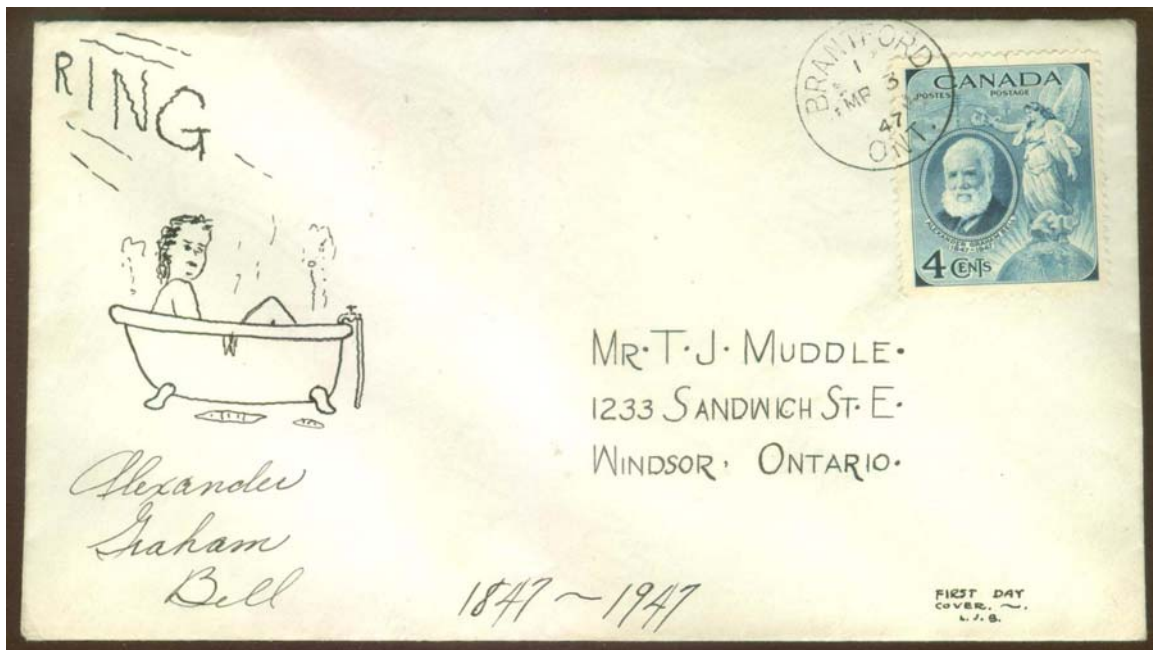 RING
BRANTFORD
1
MR 3
47
ONT.
CANADA
POSTES POSTAGE
ALEXANDER GRAHAM BELL
1847-1947
4 CENTS
MR. T. J. MUDDLE.
1233 SANDWICH ST. E.
WINDSOR, ONTARIO.
Alexander
Graham
Bell
1847 ~ 1947
FIRST DAY
COVER. ~.
L. J. B.